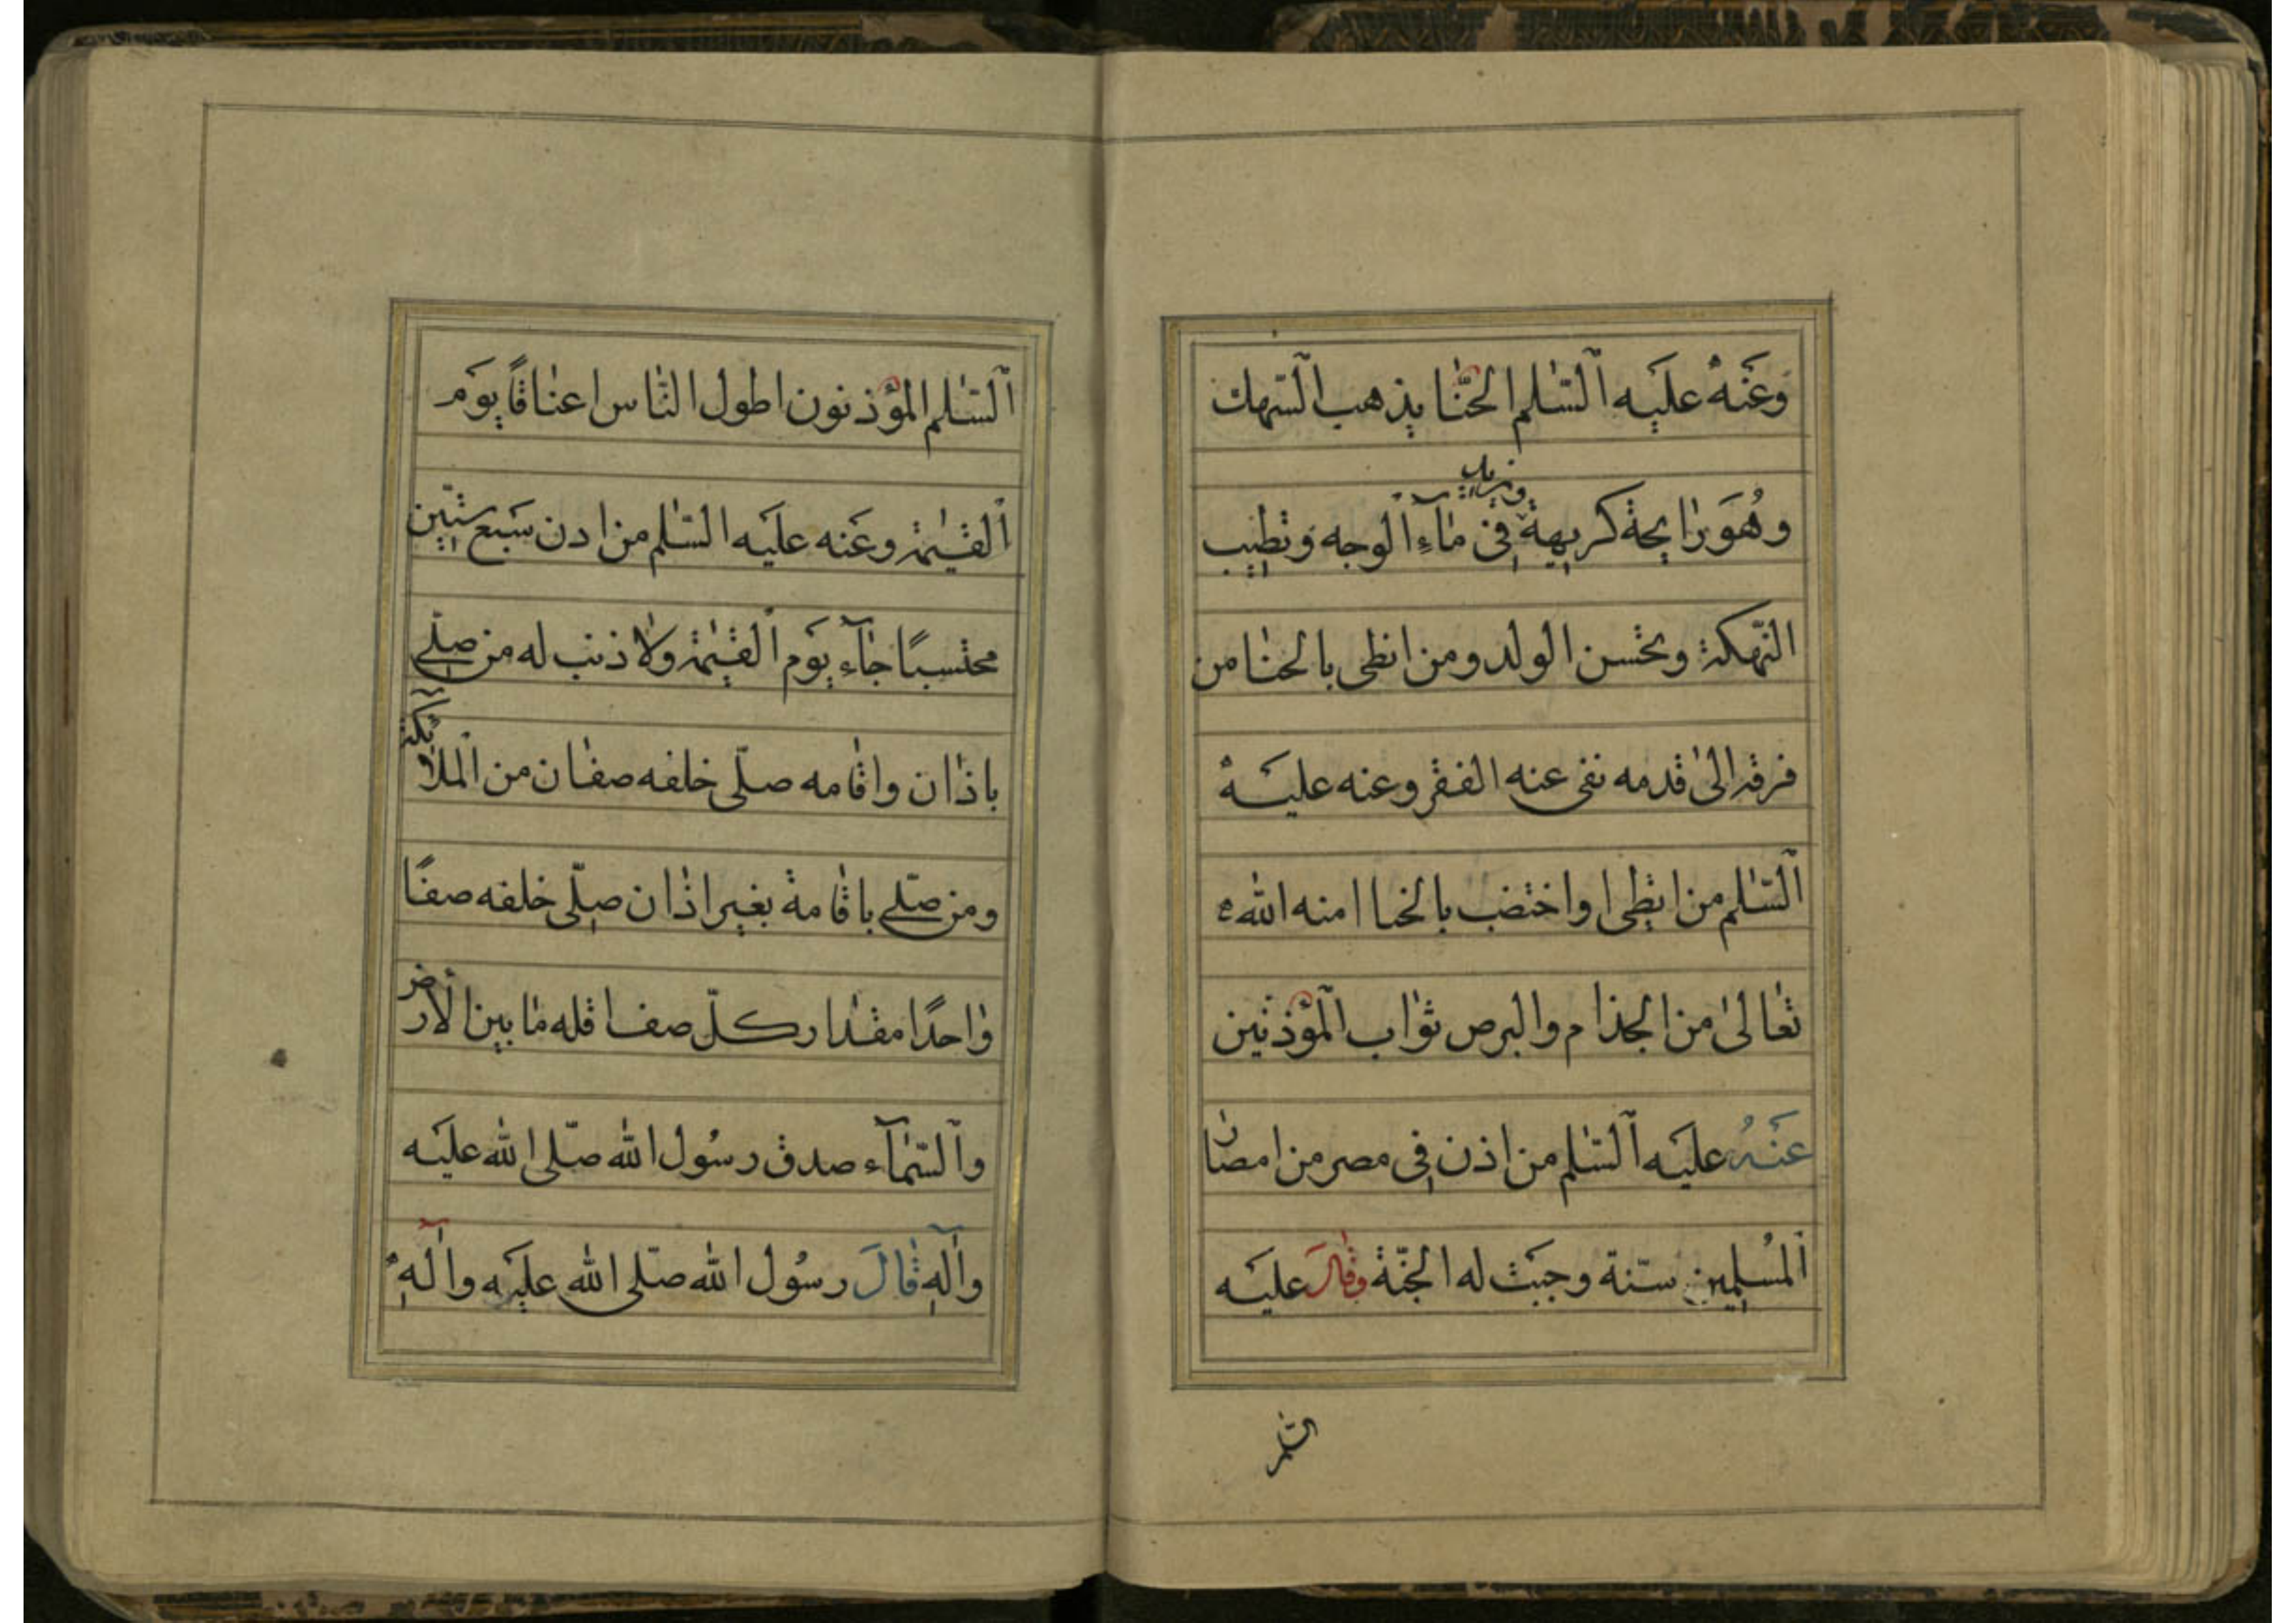 وَعَنْهُ علَيه اَلسّٰلم الحنّٰا يذهب السّهك
وهُوَ رٰايحة كريهة فى مٰآءِ الوجه وَتطيب
ويزيد
النّهكة ويحسن الولد ومن اطلى بالحنٰا من
فرقه الىٰ قدمه نفى عنه الفقر وعنه عليه
اَلسّٰلم من اطلى واختضب بالحنا امنه الله
تعٰالىٰ من الجذام والبرص ثوٰاب اَلمؤذنين
عَنْهُ علَيه اَلسّٰلم من اذن فى مصر من امصٰار
اَلمُسلمين سنّة وجبَت له الجنّة وقٰالَ عليَه
اَلسّٰلم المؤذنون اطول النّٰاس اعنٰاقًا يوَم
اَلقيٰمة وعَنه علَيه السّٰلم من ادن سَبع سنّين
محتسبًا جٰآء يوَم اَلقيٰمة ولٰا ذنب له من صلّى
باذٰان واقٰامه صلّى خلفه صفٰان من اَلملٰآئكة
ومن صلّى باقٰامة بغير اذٰان صلّى خلفه صفًا
وٰاحدًا مقدٰار كلّ صف اقله مٰا بين اَلأرض
واَلسّمٰآء صدق رسُول الله صلّى الله عليَه
وآله قٰالَ رسُول الله صلّى الله علَيه وآله